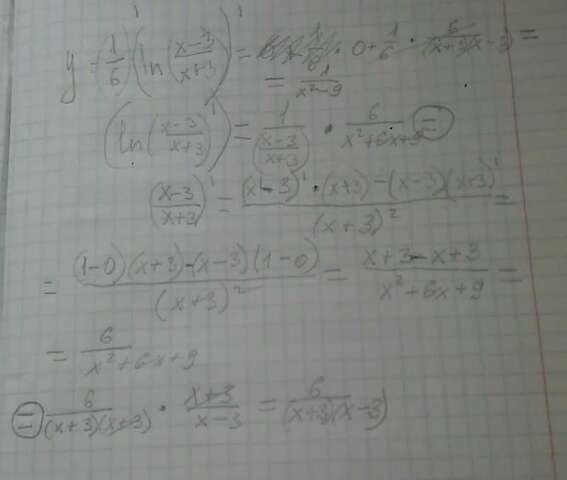 y = (1/6)' (ln(x-3/x+3))' = 1/6 · 0 + 1/6 · 6/(x+3)(x-3) =
= 1/x²-9
(ln(x-3/x+3))' = 1/(x-3/x+3) · 6/x²+6x+9 =
(x-3/x+3)' = (x-3)'·(x+3)-(x-3)(x+3)'/(x+3)² =
= (1-0)(x+3)-(x-3)(1-0)/(x+3)² = x+3-x+3/x²+6x+9 =
= 6/x²+6x+9
= 6/(x+3)(x+3) · x+3/x-3 = 6/(x+3)(x-3)